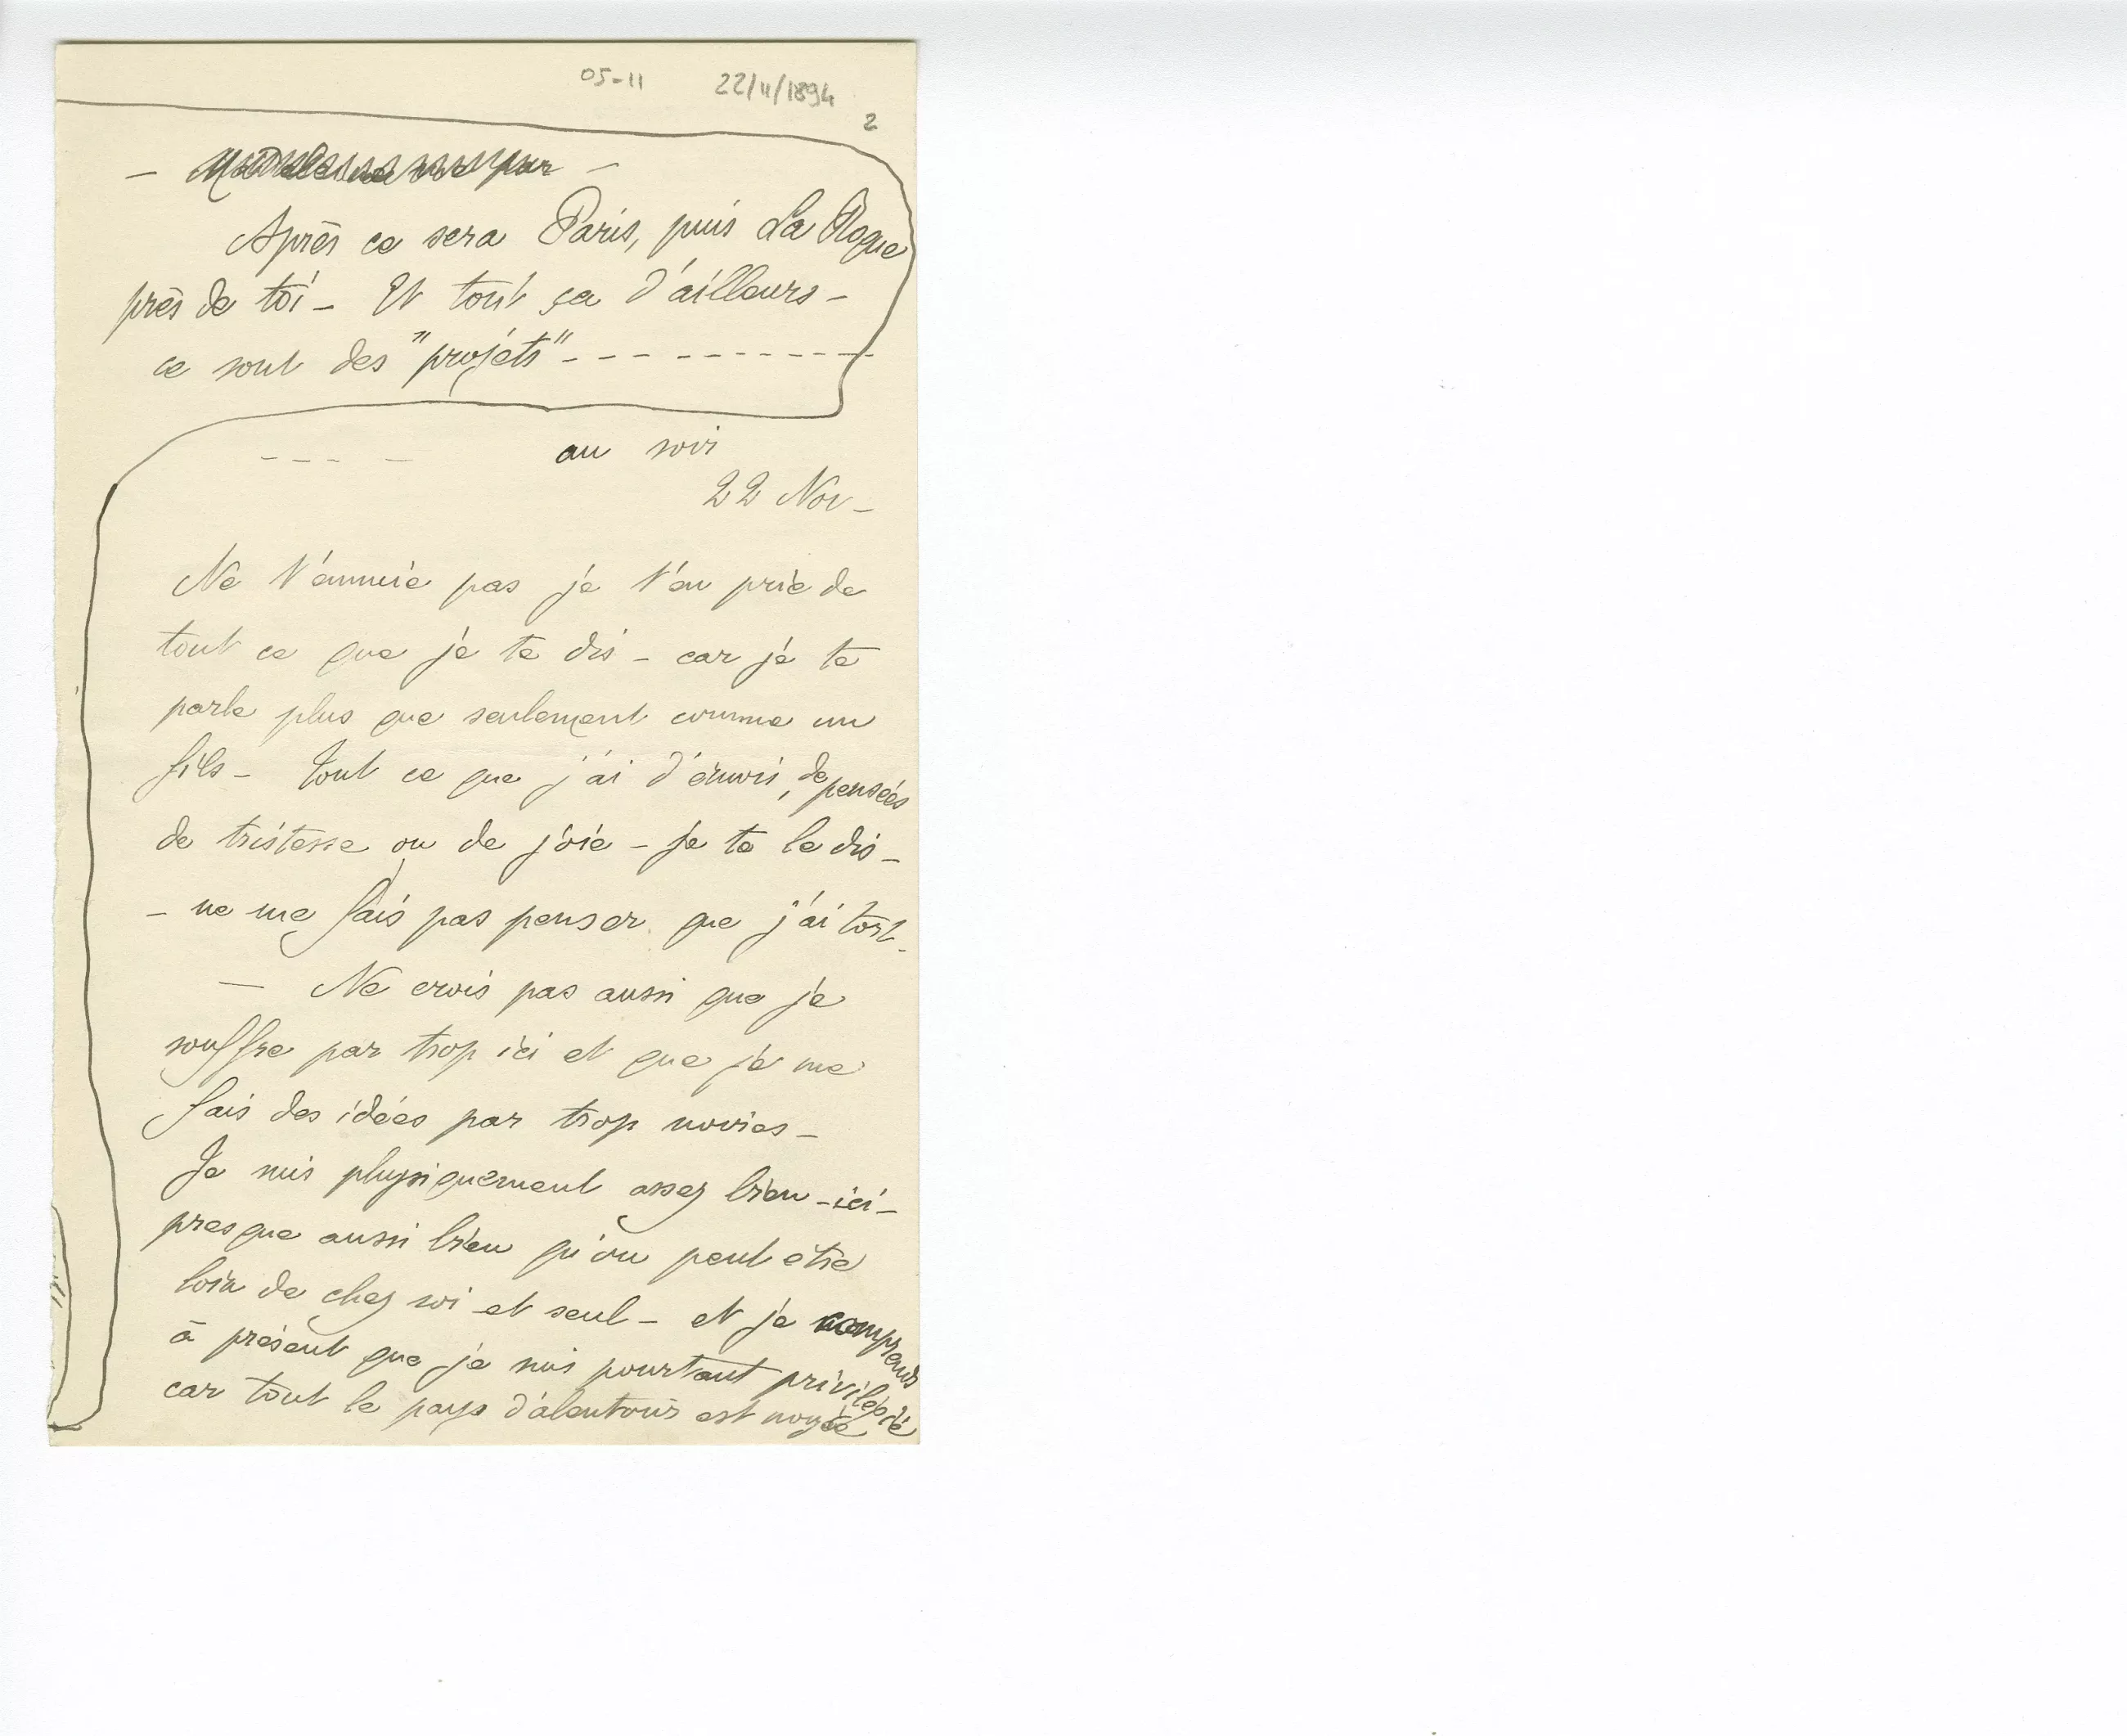 05-11 22/11/1894
2
Après ce sera Paris, puis La Roque
près de toi - Et tout ça d'ailleurs -
ce sont des "projets" - - - - - - - - - - -
- - - - au soir
22 Nov -
Ne t'ennuie pas je t'en prie de
tout ce que je te dis - car je te
parle plus que seulement comme un
fils - Tout ce que j'ai d'ennuis, de pensées
de tristesse ou de joie - je te le dis -
- ne me fais pas penser que j'ai tort -
- Ne crois pas aussi que je
souffre par trop ici et que je me
fais des idées par trop noires -
Je suis physiquement assez bien - ici -
presque aussi bien qu'on peut être
loin de chez soi et seul - et je comprends
à présent que je suis pourtant privilégié
car tout le pays d'alentours est noyé